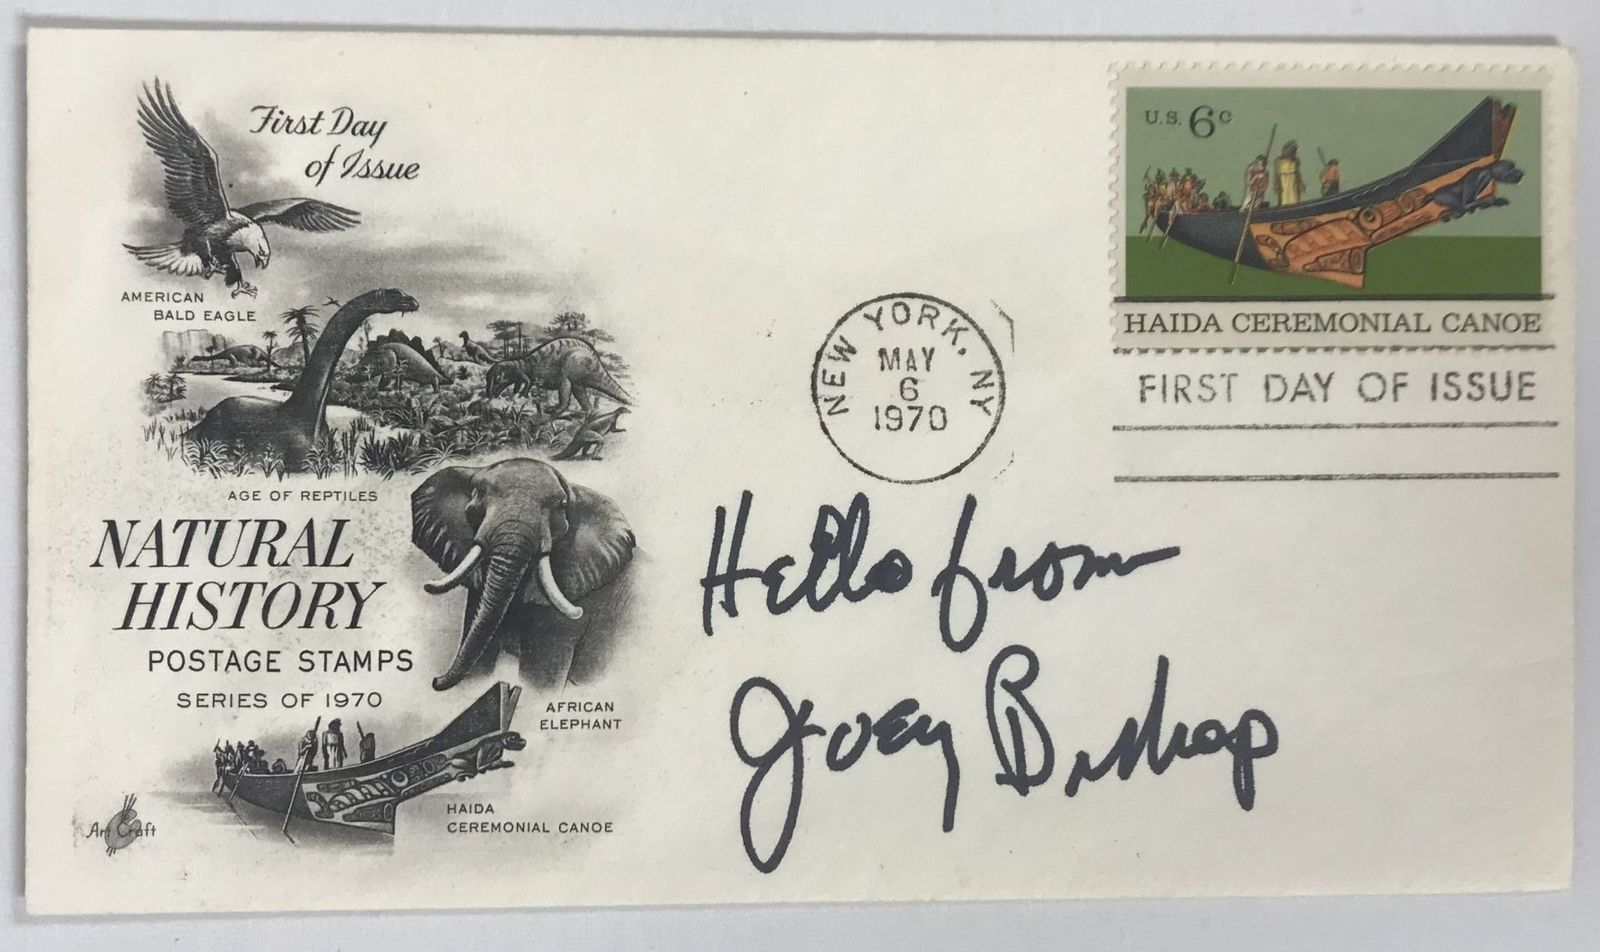 First Day
of Issue
AMERICAN
BALD EAGLE
AGE OF REPTILES
NATURAL
HISTORY
POSTAGE STAMPS
SERIES OF 1970
AFRICAN
ELEPHANT
HAIDA
CEREMONIAL CANOE
Art Craft
U.S. 6c
HAIDA CEREMONIAL CANOE
NEW YORK, NY
MAY
6
1970
FIRST DAY OF ISSUE
Hello from
Joey Bishop